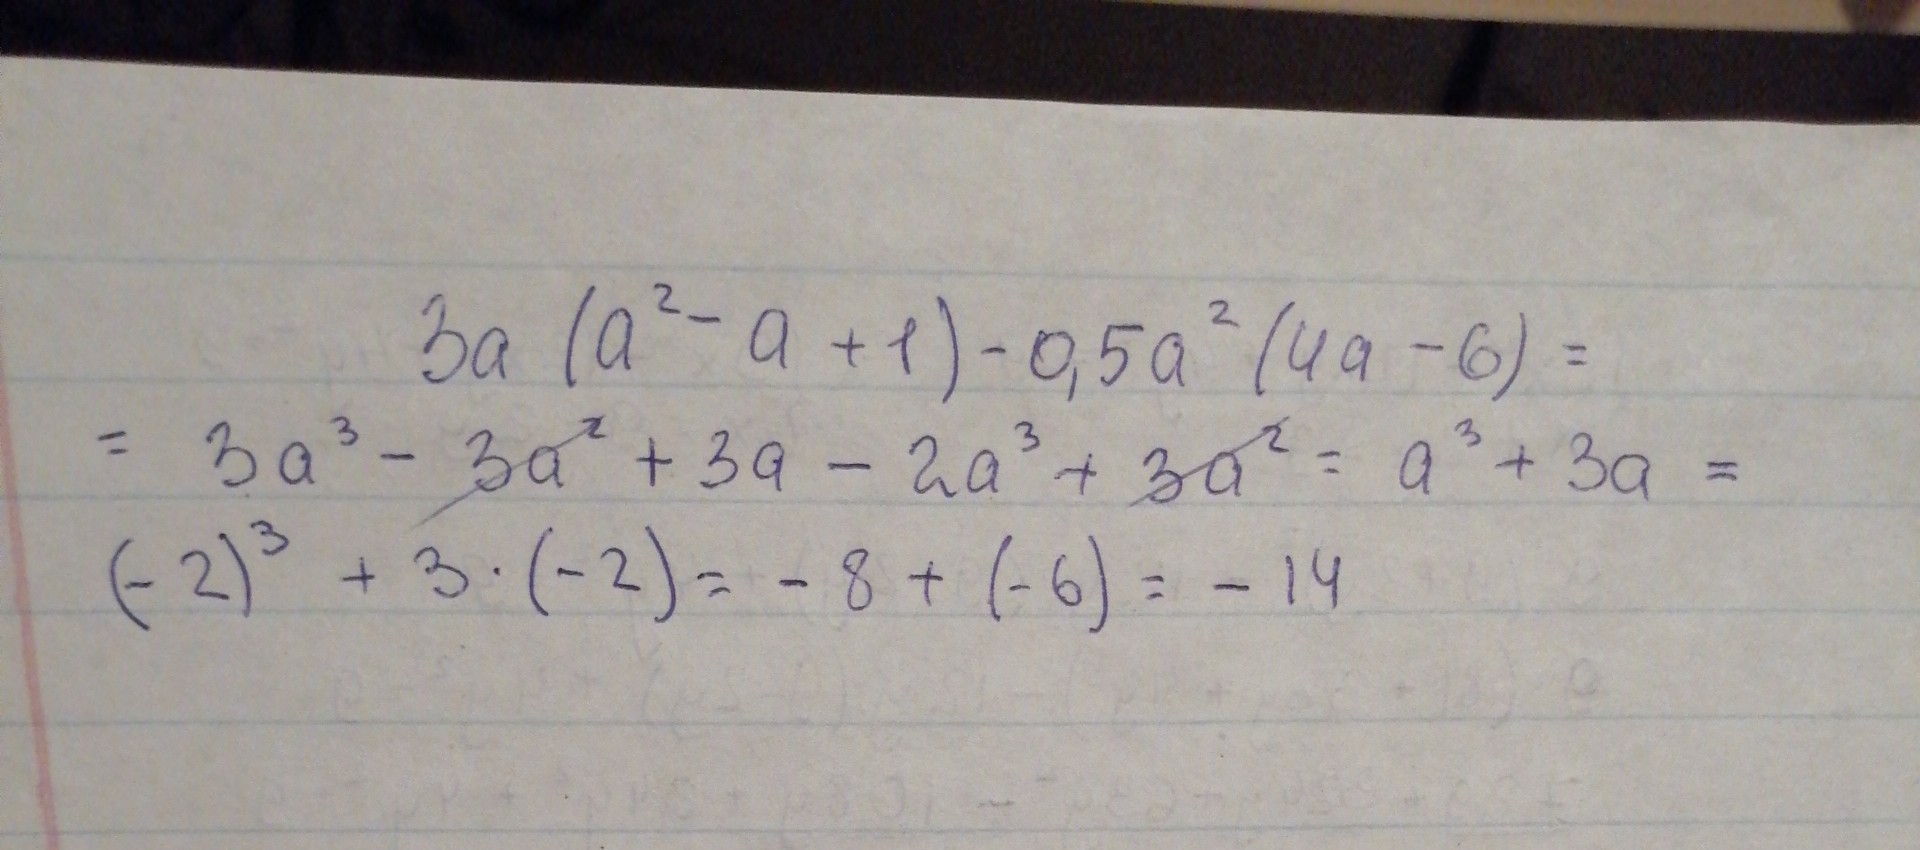 3a (a² - a + 1) - 0,5a² (4a - 6) =
= 3a³ - 3a² + 3a - 2a³ + 3a² = a³ + 3a =
(-2)³ + 3 · (-2) = - 8 + (-6) = - 14